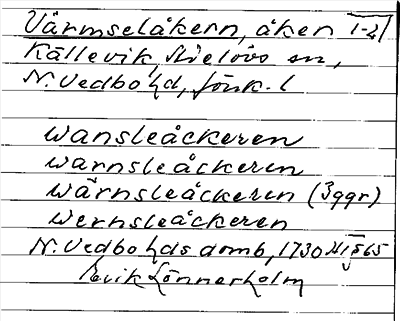 Värmseläkern, åker 1-2
Källevik, Hielövs sn,
N. Vedbo hd, Jönk. l
wansleåckeren
warnsleåckeren
wärnsleåckeren (3ggr)
wernsleåckeren
N. Vedbo hds domb, 1730 § 65
Erik Lönnerholm